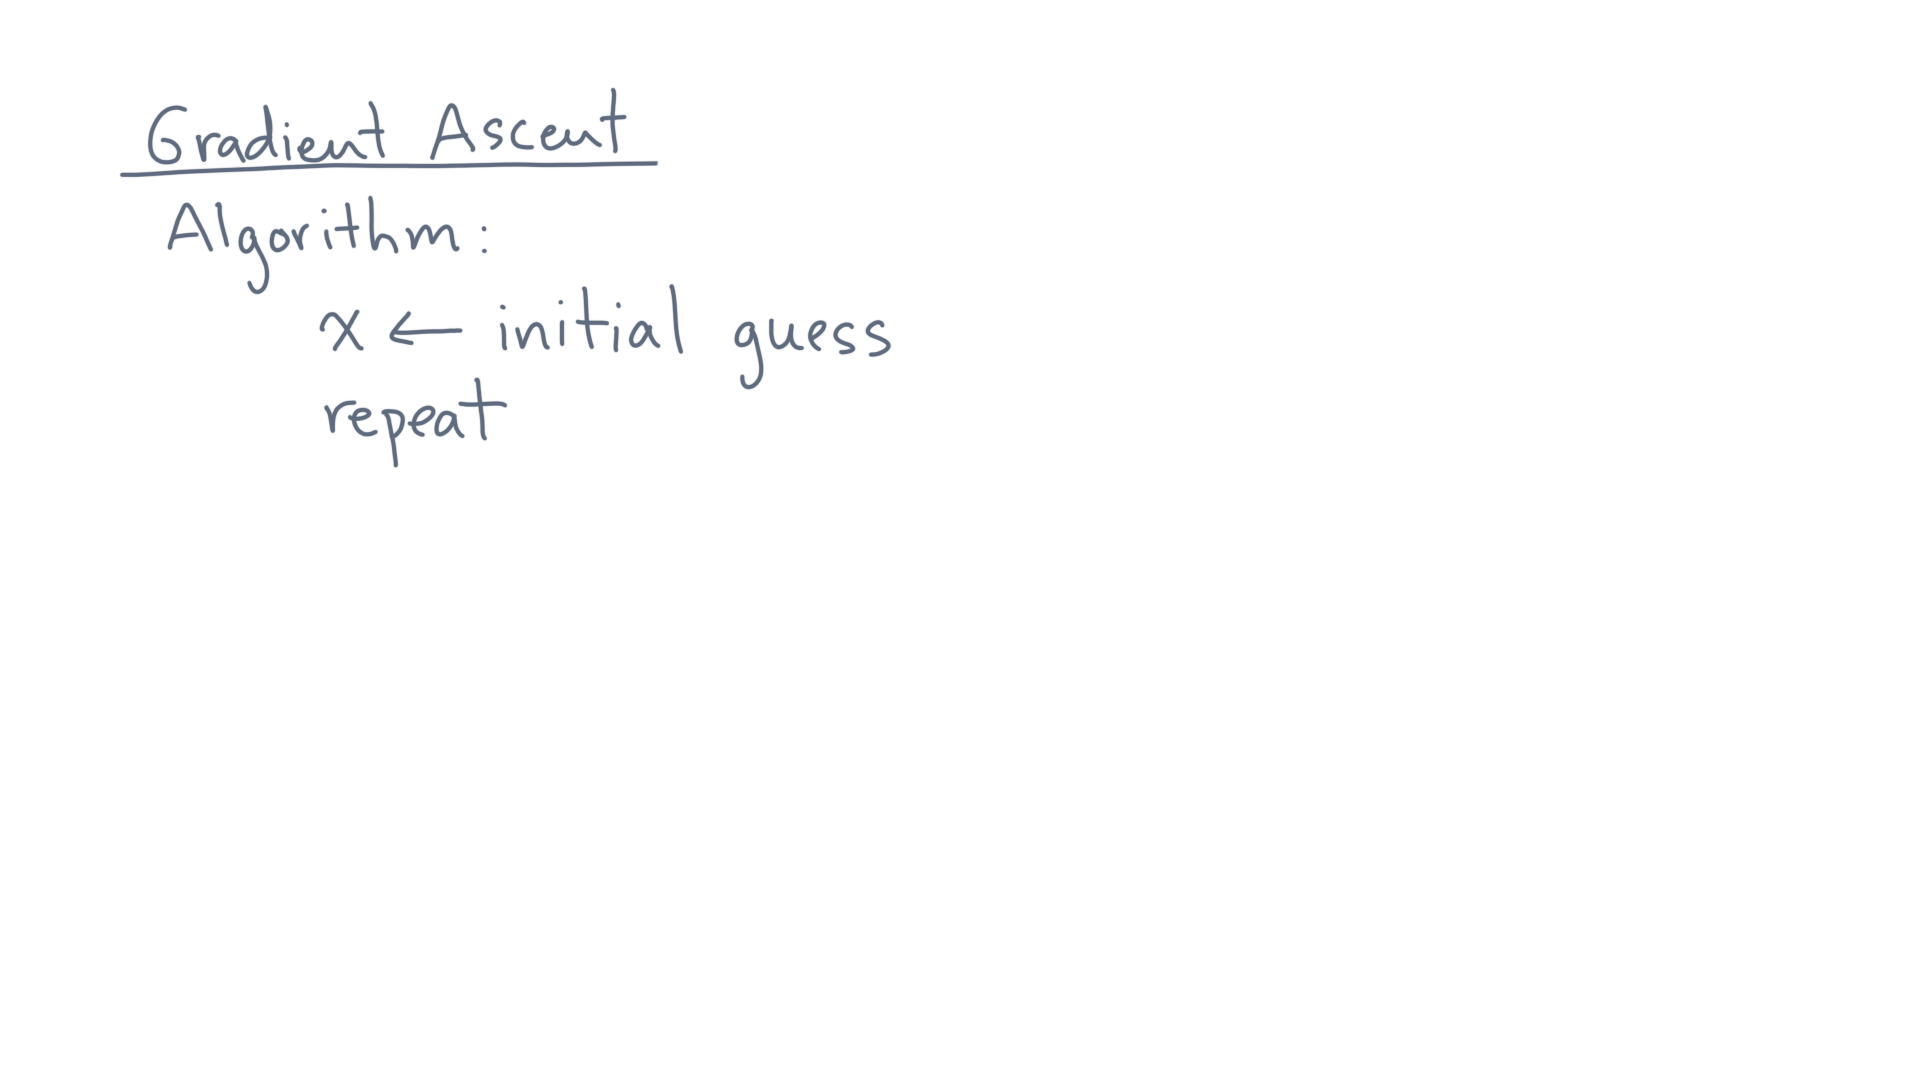 Gradient Ascent
Algorithm:
x ← initial guess
repeat